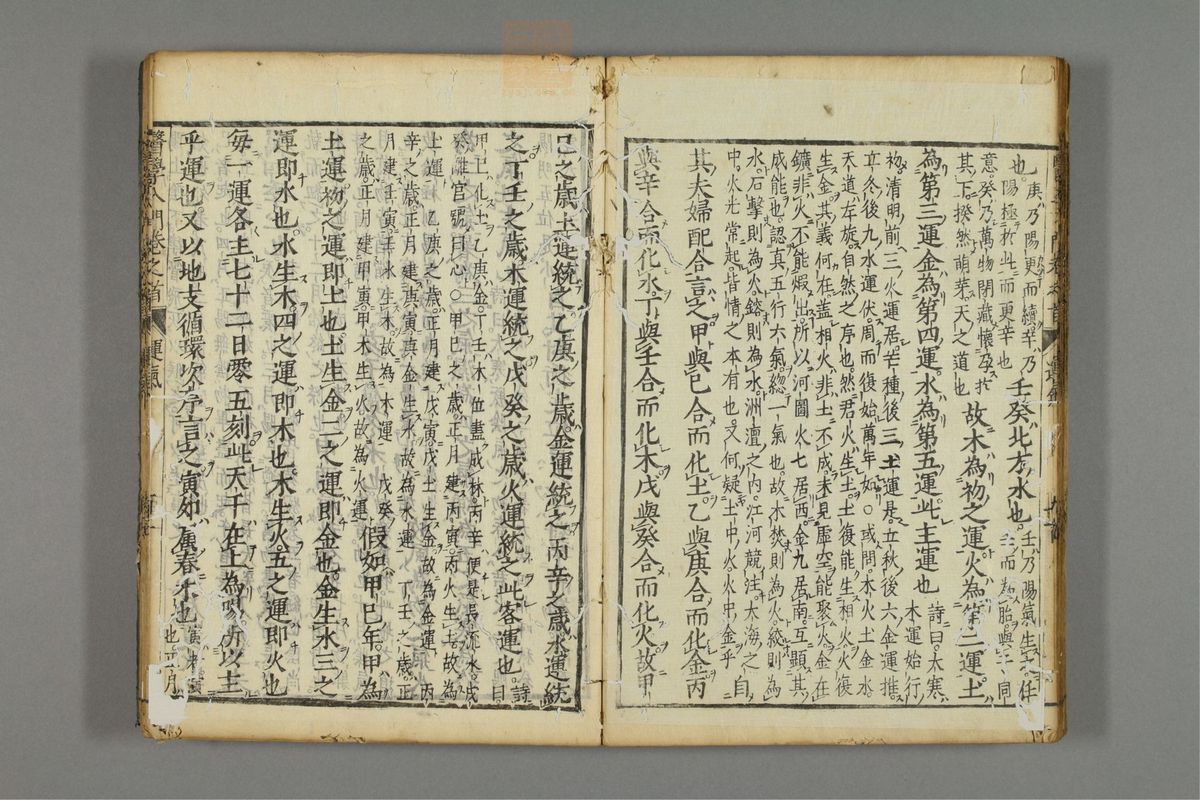 也庚乃陽更而續辛乃
陽極於此而更辛也
壬癸北方水也
壬乃陽氣生壬任
壬而為胎與子同
意癸乃萬物閉藏懷孕於
其下揆然萌芽天之道也
故木為初之運火為第二運土
為第三運金為第四運水為第五運此主運也
詩曰大寒
木運始行
初清明前三火運居芒種後三土運是立秋後六金運推
立冬後九水運伏周而復始萬年如○或問木火土金水
天道左旋自然之序也然君火生土土後能生相火火復
生金其義何在蓋相火非土不成未見虛空能聚火金在
鑛非火不能煅出所以河圖火七居西金九居南互顯其
成能也認真五行六氣總一氣也故木焚則為火絞則為
水石擊則為火鎔則為水洲澶之內江河競注大海之
中火光常起皆情之本有也又何疑土中火火中金乎
自
其夫婦配合言之甲與己合而化土乙與庚合而化金丙
與辛合而化水丁與壬合而化木戊與癸合而化火故甲
己之歲土運統之乙庚之歲金運統之丙辛之歲水運統
之丁壬之歲木運統之戊癸之歲火運統之此客運也
詩曰
甲己化土乙庚金丁壬木位盡成林丙辛便是長流水戊
癸離宮號曰心○甲己之歲正月建丙寅丙火生土故為
土運 乙庚之歲正月建戊寅戊土生金故為金運 丙
辛之歲正月建庚寅庚金生水故為水運 丁壬之歲正
月建壬寅壬水生木故為木運 戊癸
之歲正月建甲寅甲木生火故為火運
假如甲己年甲為
土運初之運即土也土生金二之運即金也金生水三之
運即水也水生木四之運即木也木生火五之運即火也
每一運各主七十二日零五刻此天干在上為
所以主
乎運也又以地支循環次序言之寅卯屬春木也
也正月
醫學入門卷之首
運氣